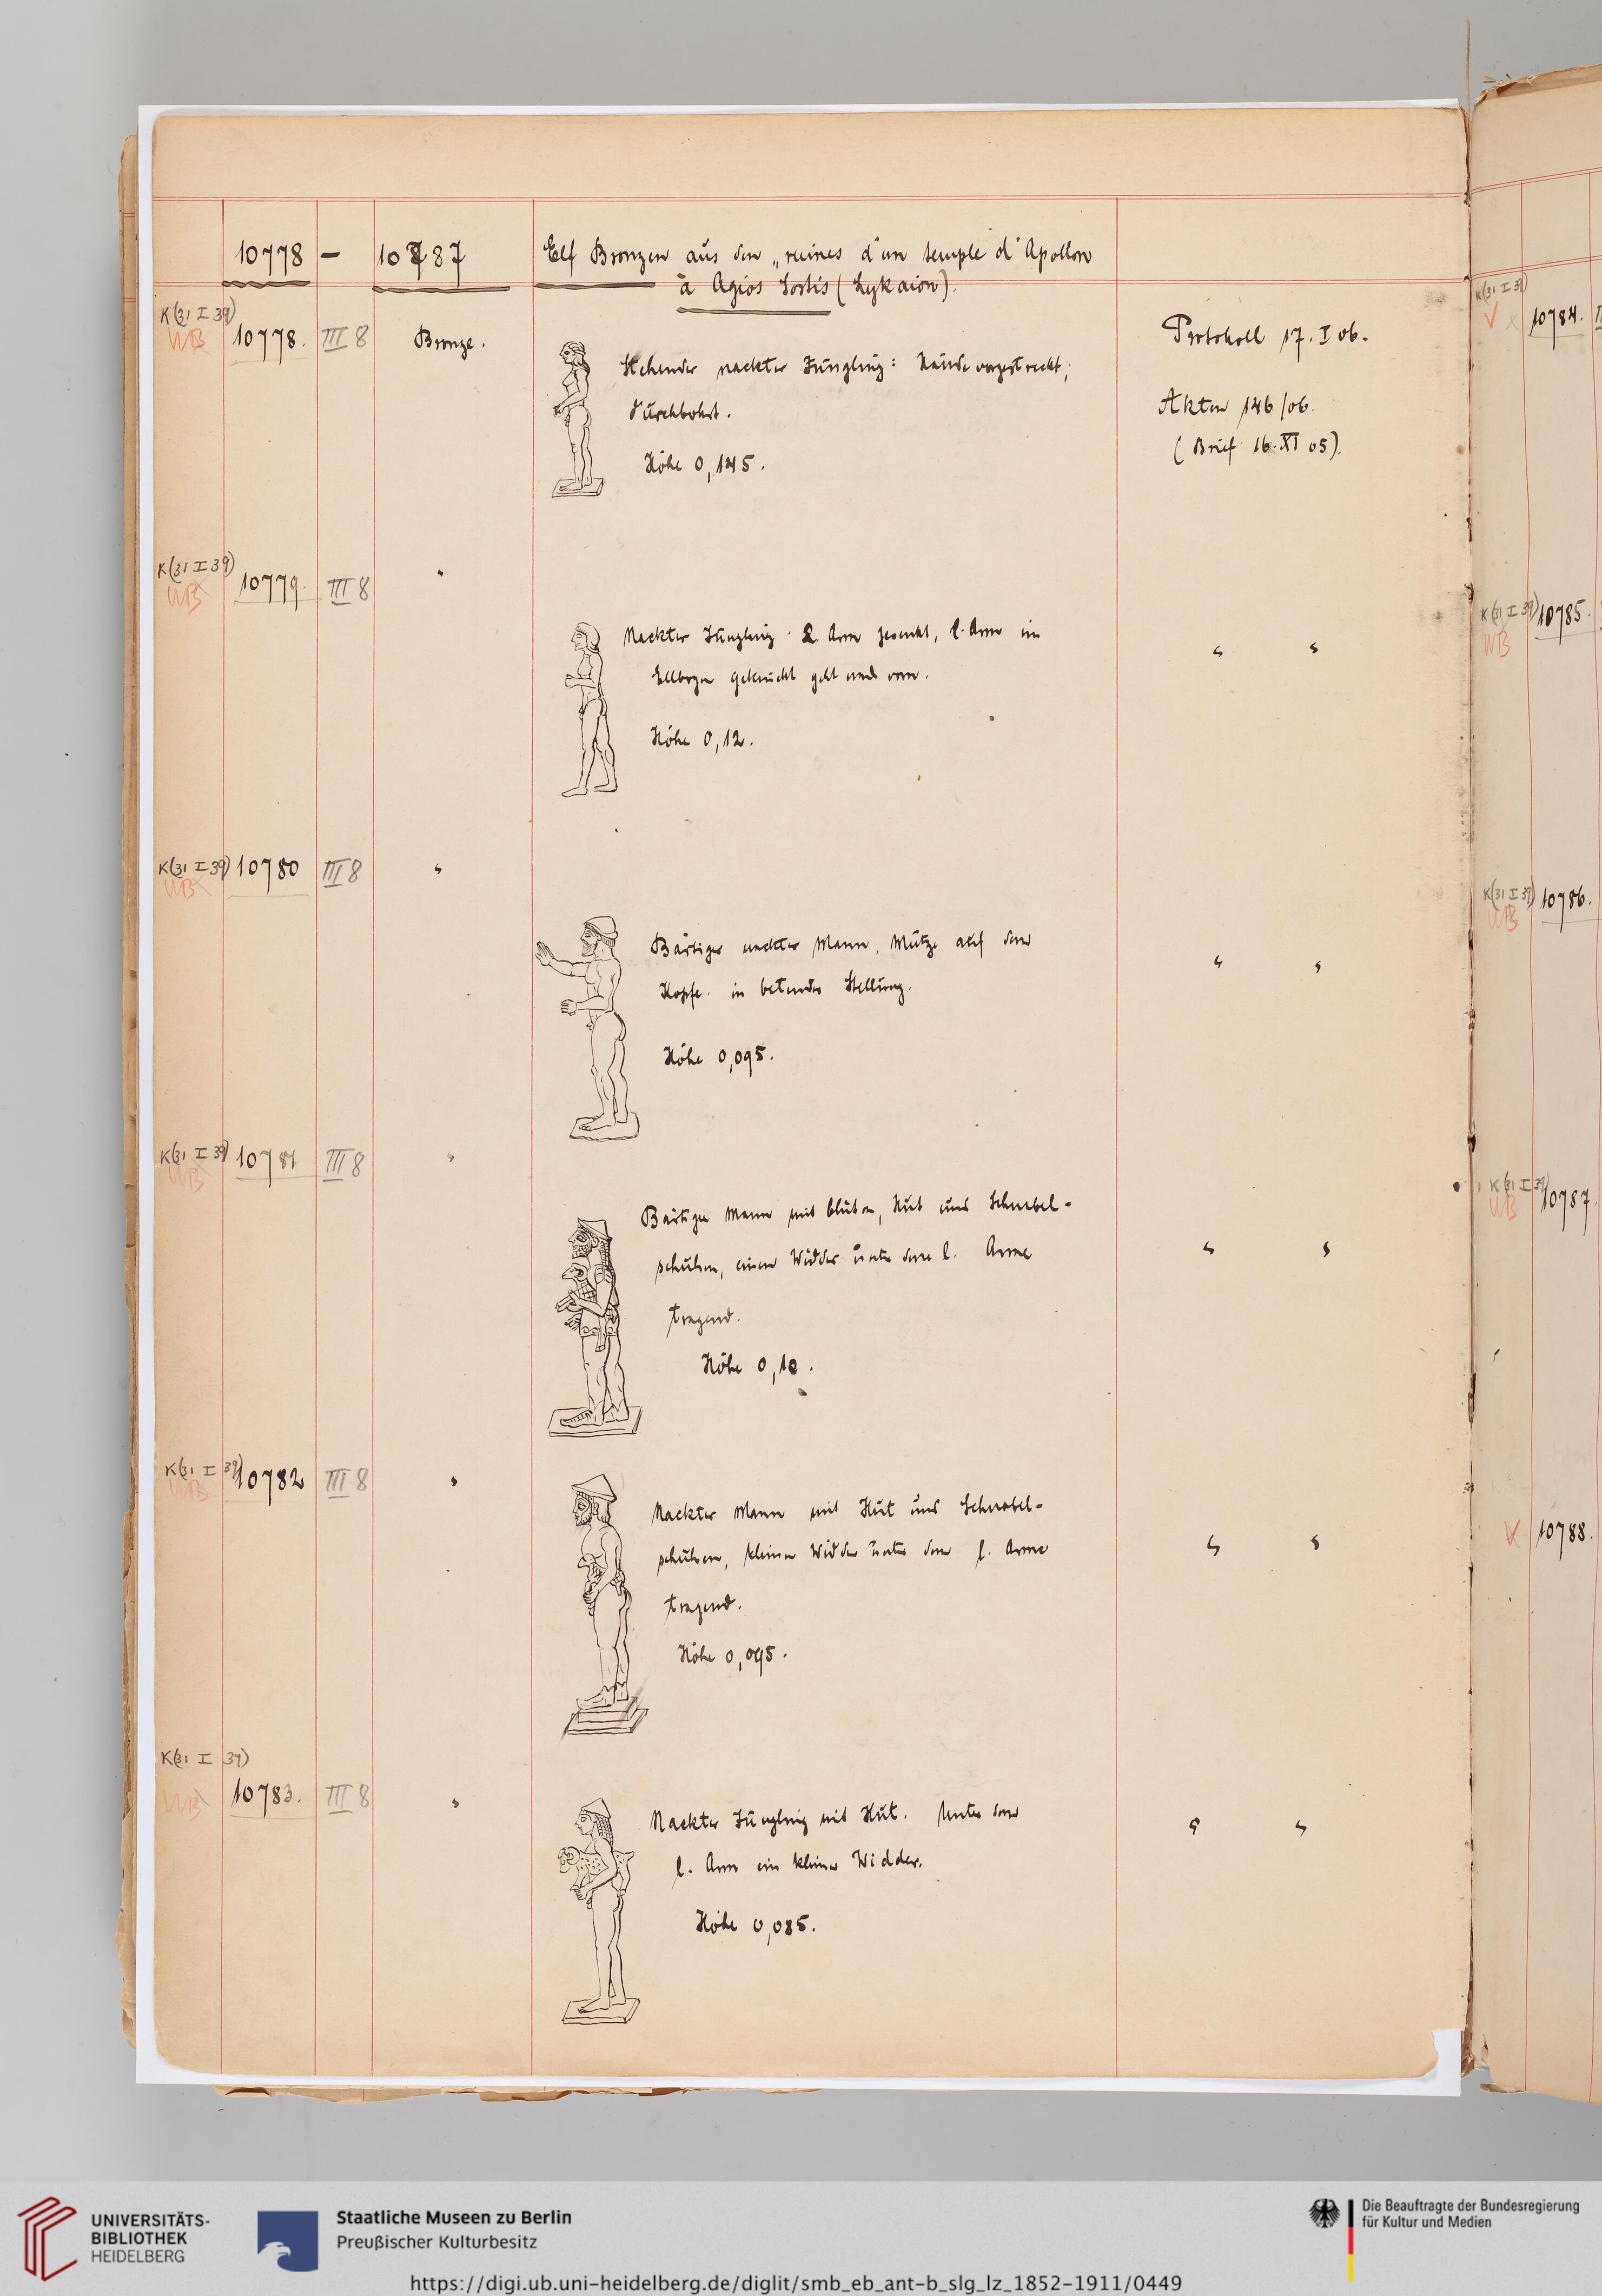 10778 – 10787 Elf Bronzen aus den „ruines d'un temple d'Apollon
à Agios Sostis (Lykaion).
K(31 I 39)
WB 10778. III 8 Bronze.
Stehender nackter Jüngling: Hände vorgestreckt,
durchbohrt.
Höhe 0,145.
Protokoll 17. I 06.
Akten 146/06.
(Brief 16. XI 05).
K(31 I 39)
WB 10779. III 8 "
Nackter Jüngling. R. Arm gesenkt, l. Arm im
Ellbogen geknickt geht nach vorn.
Höhe 0,12.
" "
K(31 I 39) 10780 III 8 "
WB
Bärtiger nackter Mann, Mütze auf dem
Kopfe. in betender Stellung.
Höhe 0,095.
" "
K(31 I 39) 10781 III 8 "
WB
Bärtiger Mann mit, Hut und Schnabel-
schuhen, einen Widder unter dem l. Arme
tragend.
Höhe 0,10.
" "
K(31 I 39) 10782 III 8 "
WB
Nackter Mann mit Hut und Schnabel-
schuhen, kleinen Widder unter dem l. Arme
tragend.
Höhe 0,095.
" "
K(31 I 39)
WB 10783. III 8 "
Nackter Jüngling mit Hut. Unter dem
l. Arm ein kleiner Widder.
Höhe 0,085.
" "
K(31 I 39)
10784.
K(31 I 39) 10785.
WB
K(31 I 39) 10786.
WB
K(31 I 39) 10787
WB
10788.
UNIVERSITÄTS-
BIBLIOTHEK
HEIDELBERG
Staatliche Museen zu Berlin
Preußischer Kulturbesitz
Die Beauftragte der Bundesregierung
für Kultur und Medien
https://digi.ub.uni-heidelberg.de/diglit/smb_eb_ant-b_slg_lz_1852-1911/0449